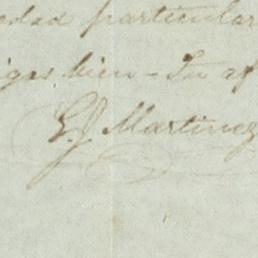 edad particular
igas bien - Tu af
E.J. Martinez